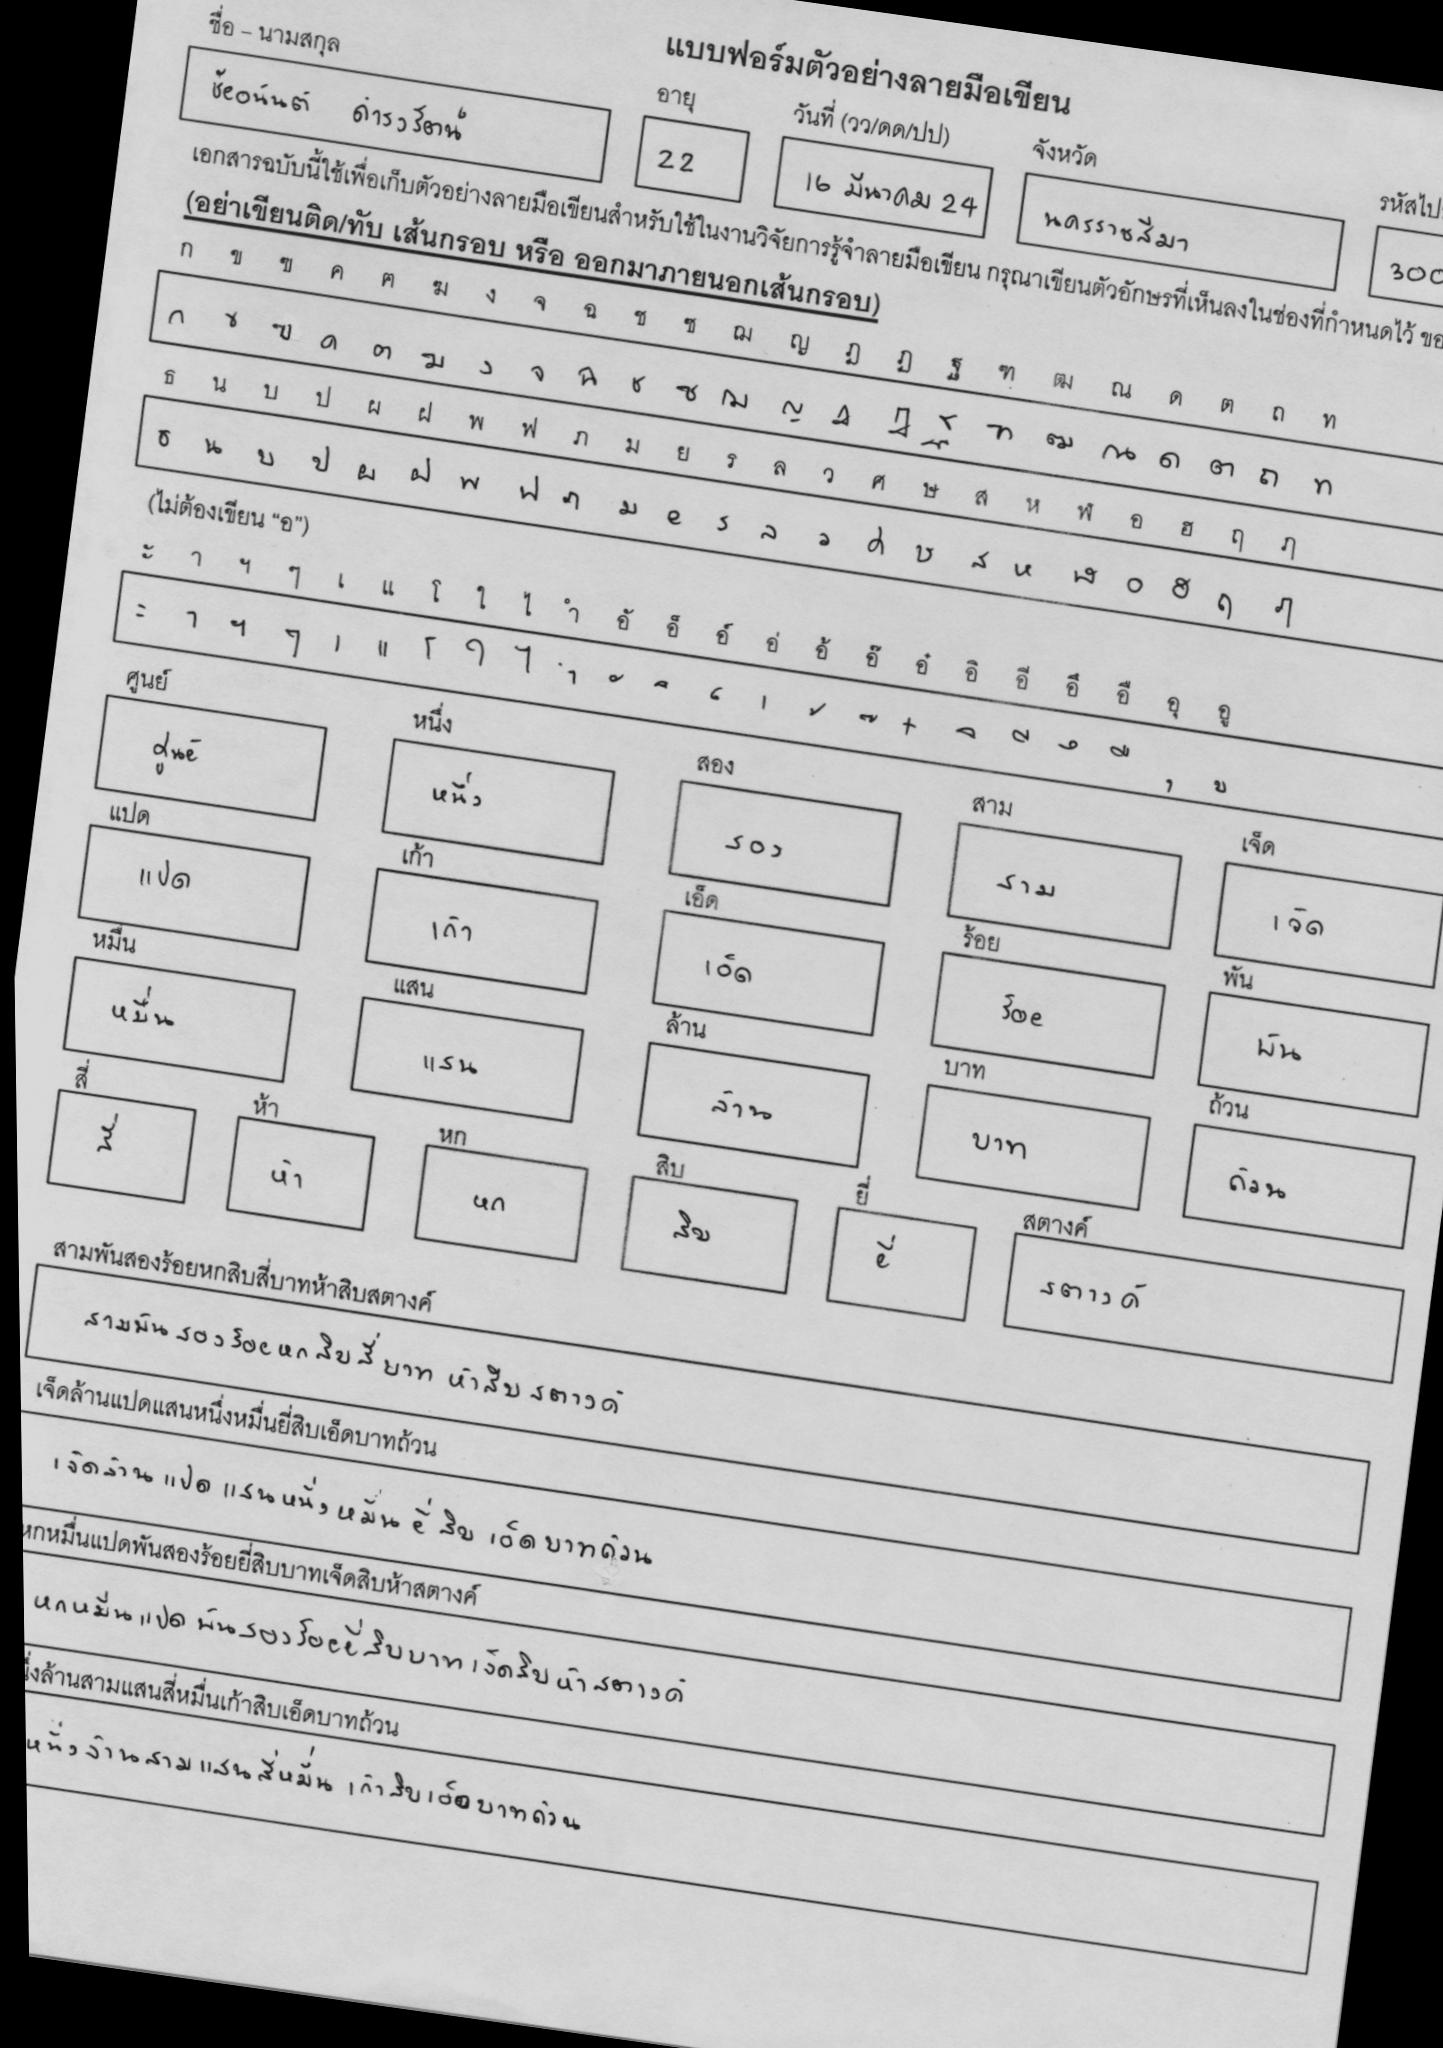 แบบฟอร์มตัวอย่างลายมือเขียน
ชื่อ – นามสกุล อายุ วันที่ (วว/ดด/ปป) จังหวัด รหัสไป
22 16 มีนาคม 24 นครราชสีมา 300
เอกสารฉบับนี้ใช้เพื่อเก็บตัวอย่างลายมือเขียนสำหรับใช้ในงานวิจัยการรู้จำลายมือเขียน กรุณาเขียนตัวอักษรที่เห็นลงในช่องที่กำหนดไว้ ขอ
(อย่าเขียนติด/ทับ เส้นกรอบ หรือ ออกมาภายนอกเส้นกรอบ)
ก ข ฃ ค ฅ ฆ ง จ ฉ ช ซ ฌ ญ ฎ ฏ ฐ ฑ ฒ ณ ด ต ถ ท
ก ข ฃ ค ฅ ฆ ง จ ฉ ช ซ ฌ ญ ฎ ฏ ฐ ฑ ฒ ณ ด ต ถ ท
ธ น บ ป ผ ฝ พ ฟ ภ ม ย ร ล ว ศ ษ ส ห ฬ อ ฮ ฤ ฦ
ธ น บ ป ผ ฝ พ ฟ ภ ม ย ร ล ว ศ ษ ส ห ฬ อ ฮ ฤ ฦ
(ไม่ต้องเขียน “อ”)
ะ า ฯ ๆ เ แ โ ใ ไ ำ อั อ็ อ์ อ่ อ้ อ๊ อ๋ อิ อี อึ อื อุ อู
ะ า ฯ ๆ เ แ โ ใ ไ ำ ั ็ ์ ่ ้ ๊ ๋ ิ ี ึ ื ุ ู
ศูนย์ หนึ่ง สอง สาม เจ็ด
ศูนย์ หนึ่ง สอง สาม เจ็ด
แปด เก้า เอ็ด ร้อย พัน
แปด เก้า เอ็ด ร้อย พัน
หมื่น แสน ล้าน บาท ถ้วน
หมื่น แสน ล้าน บาท ถ้วน
สี่ ห้า หก สิบ ยี่ สตางค์
สี่ ห้า หก สิบ ยี่ สตางค์
สามพันสองร้อยหกสิบสี่บาทห้าสิบสตางค์
สามพันสองร้อยหกสิบสี่บาท ห้าสิบสตางค์
เจ็ดล้านแปดแสนหนึ่งหมื่นยี่สิบเอ็ดบาทถ้วน
เจ็ดล้านแปดแสนหนึ่งหมื่นยี่สิบเอ็ดบาทถ้วน
หกหมื่นแปดพันสองร้อยยี่สิบบาทเจ็ดสิบห้าสตางค์
หกหมื่นแปดพันสองร้อยยี่สิบบาทเจ็ดสิบห้าสตางค์
นึ่งล้านสามแสนสี่หมื่นเก้าสิบเอ็ดบาทถ้วน
หนึ่งล้านสามแสนสี่หมื่นเก้าสิบเอ็ดบาทถ้วน